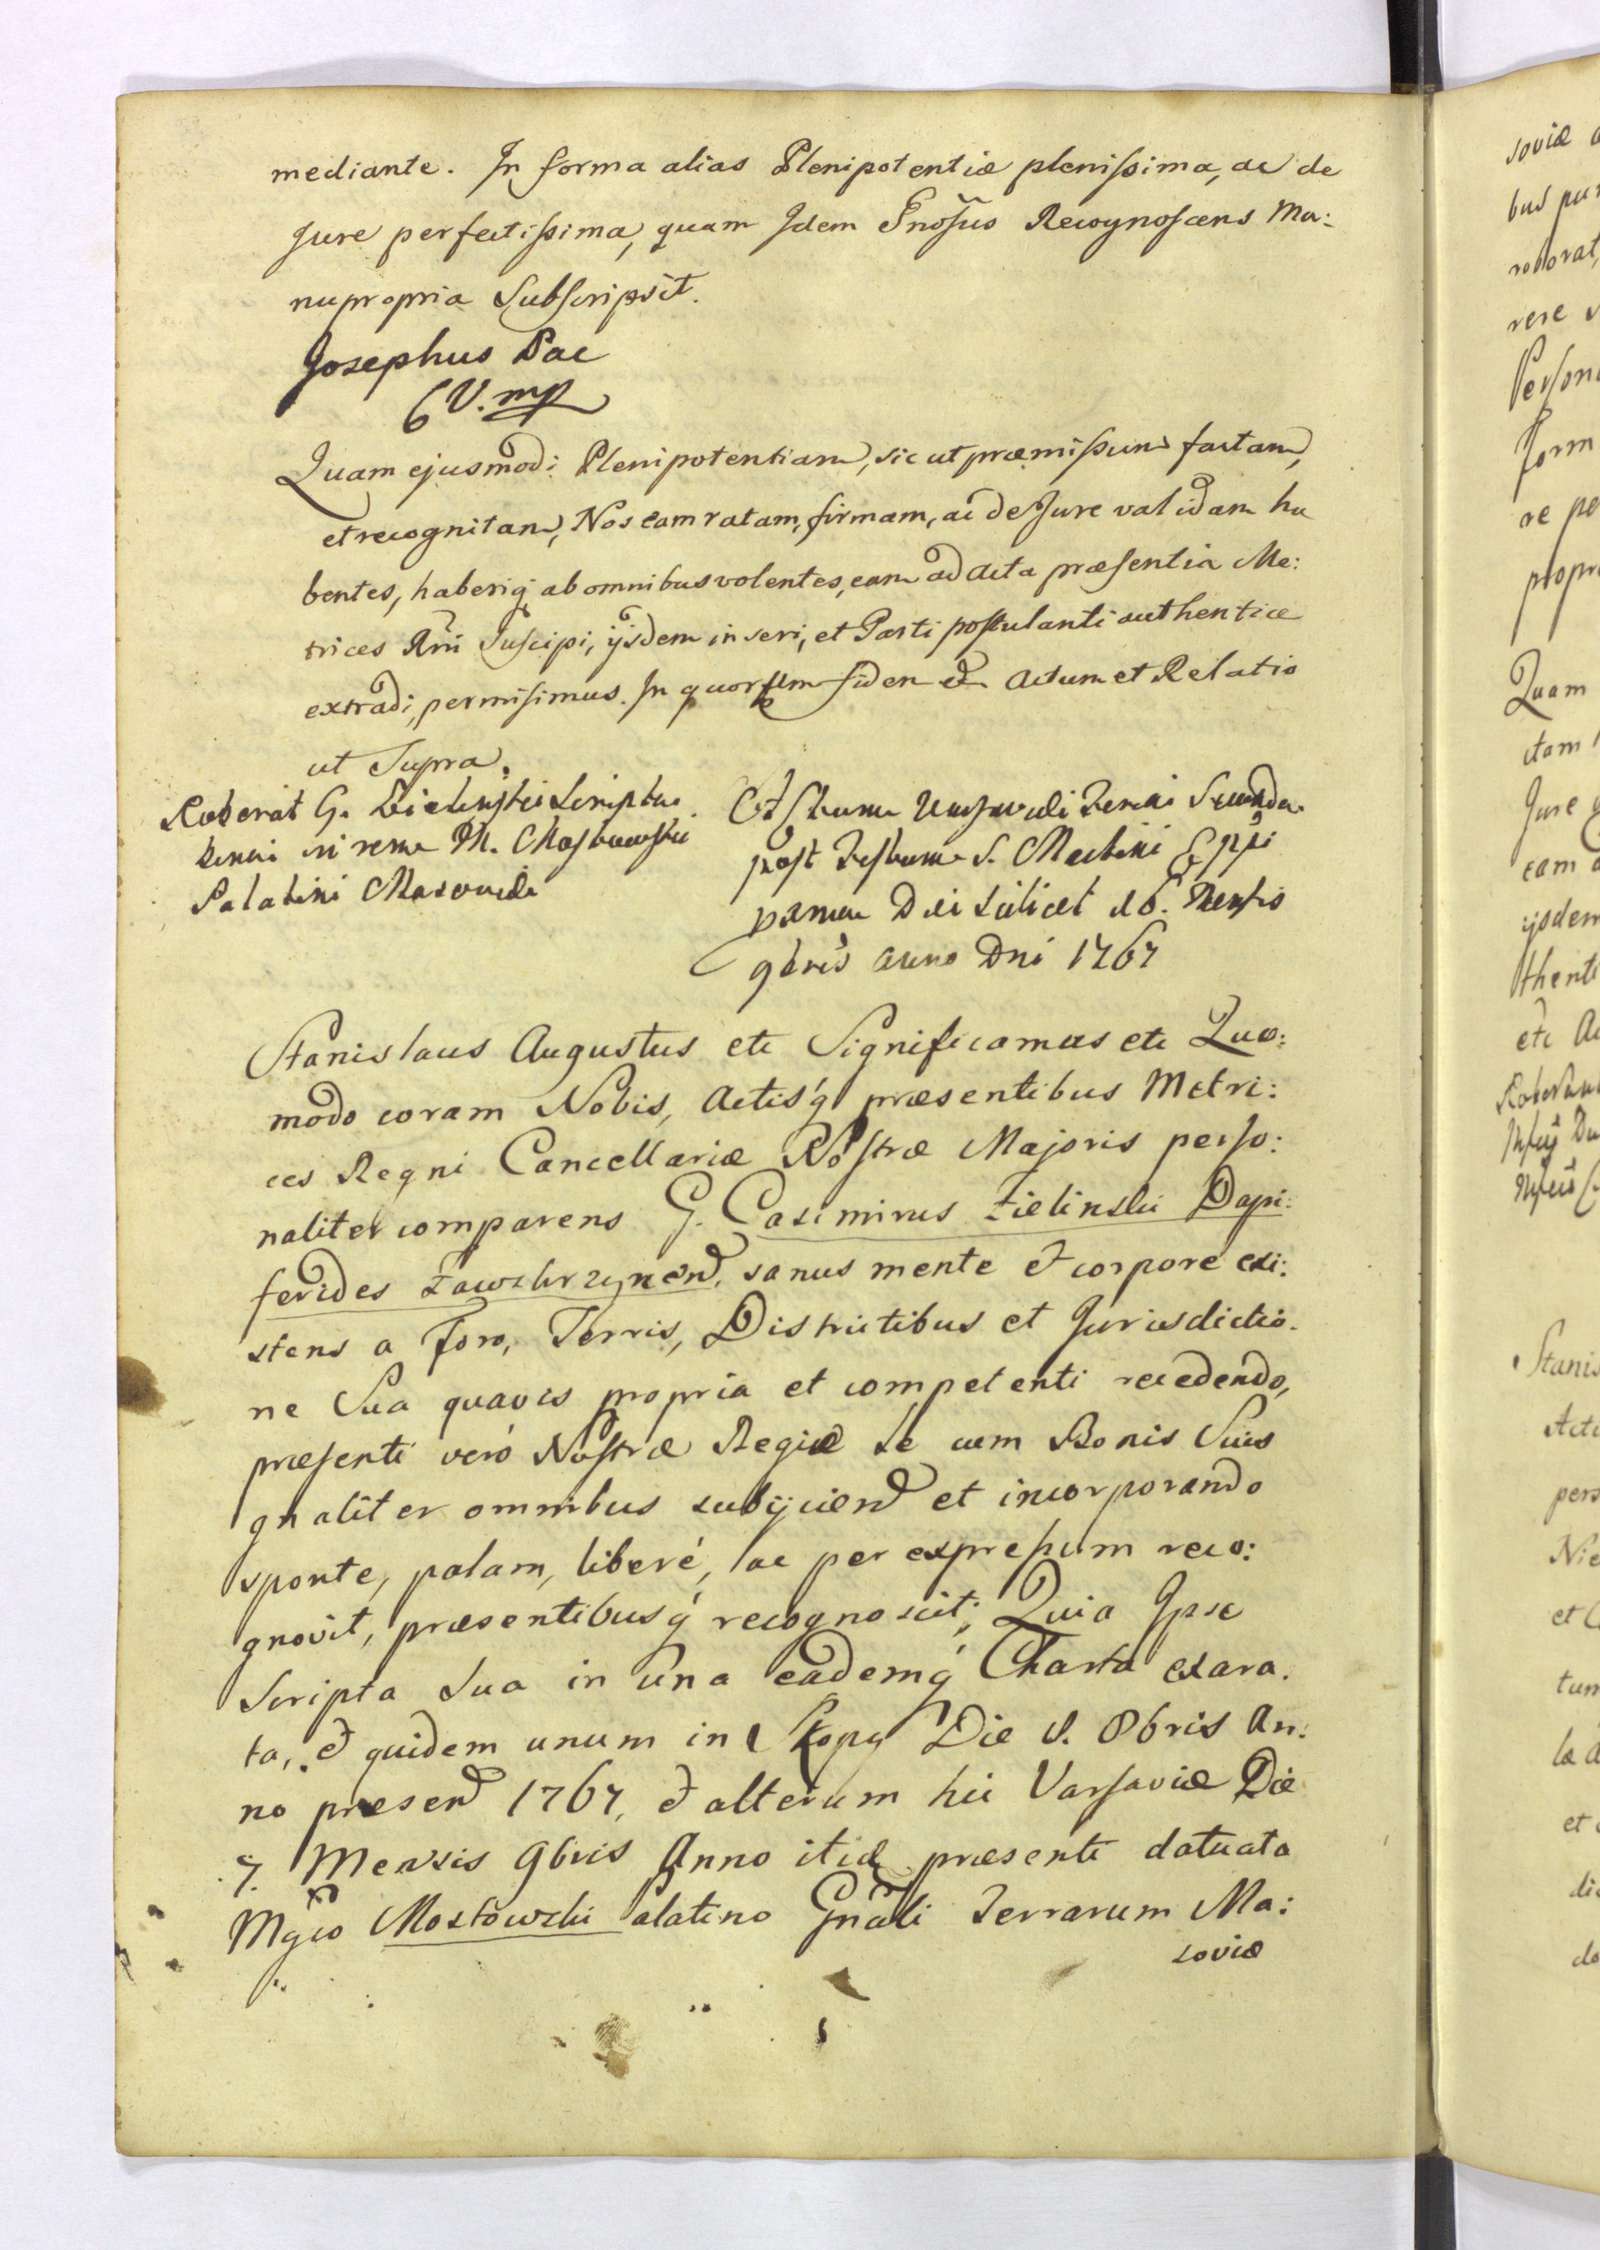 mediante. In forma alias Plenipotentiæ plenissima, ac de
Jure perfectissima, quam Idem Gnosus Recognoscens Ma:
nupropria Subscripsit.
Josephus Pac
mp
Quam ejusmodi Plenipotentiam, sic ut præmissum factam,
et recognitam, Nos eam ratam, firmam, ac de Jure validam ha
bentes, haberiq ab omnibus volentes, eam ad Acta præsentia Me:
trices Rni Suscipi, ijsdem inseri, et Parti postulanti authentice
extradi, permisimus. In quorum fidem etc Actum et Relatio
ut Supra.
Roborat G. Zielinski Scriptu
in rem M. Mostowski
Palatini Masoviæ
Actum Feria Secunda
post Festum S. Martini Eppi
Die scilicet 16. Mensis
9bris Anno Dni 1767
Stanislaus Augustus etc Significamus etc Quo:
modo coram Nobis, Actisq præsentibus Metri:
ces Regni Cancellariæ Nostræ Majoris perso:
naliter comparens G. Casimirus Zielinski Dapi:
ferides Zawskrzynen, sanus mente et corpore exi:
stens a Foro, Terris, Districtibus et Jurisdictio.
ne Sua quavis propria et competenti recedendo,
præsenti veró Nostræ Regiæ se cum Bonis Suis
gnaliter omnibus subijciend et incorporando
sponte, palam, liberé, ac per expressum reco:
gnovit, præsentibusq recognoscit; Quia Ipse
Scripta Sua in una eademq Charta exara.
ta, et quidem unum in Skopy Die 8bris An:
no præsen 1767, et alterum hic Varsaviæ Die
7. Mensis 9bris Anno itidē præsenti datuata
Mgco Mostowski Palatino Gnali Terrarum Ma:
soviæ
soviæ
rere
Quam
Jure
eam
ijsdem
Stanis
pers
Nie
et